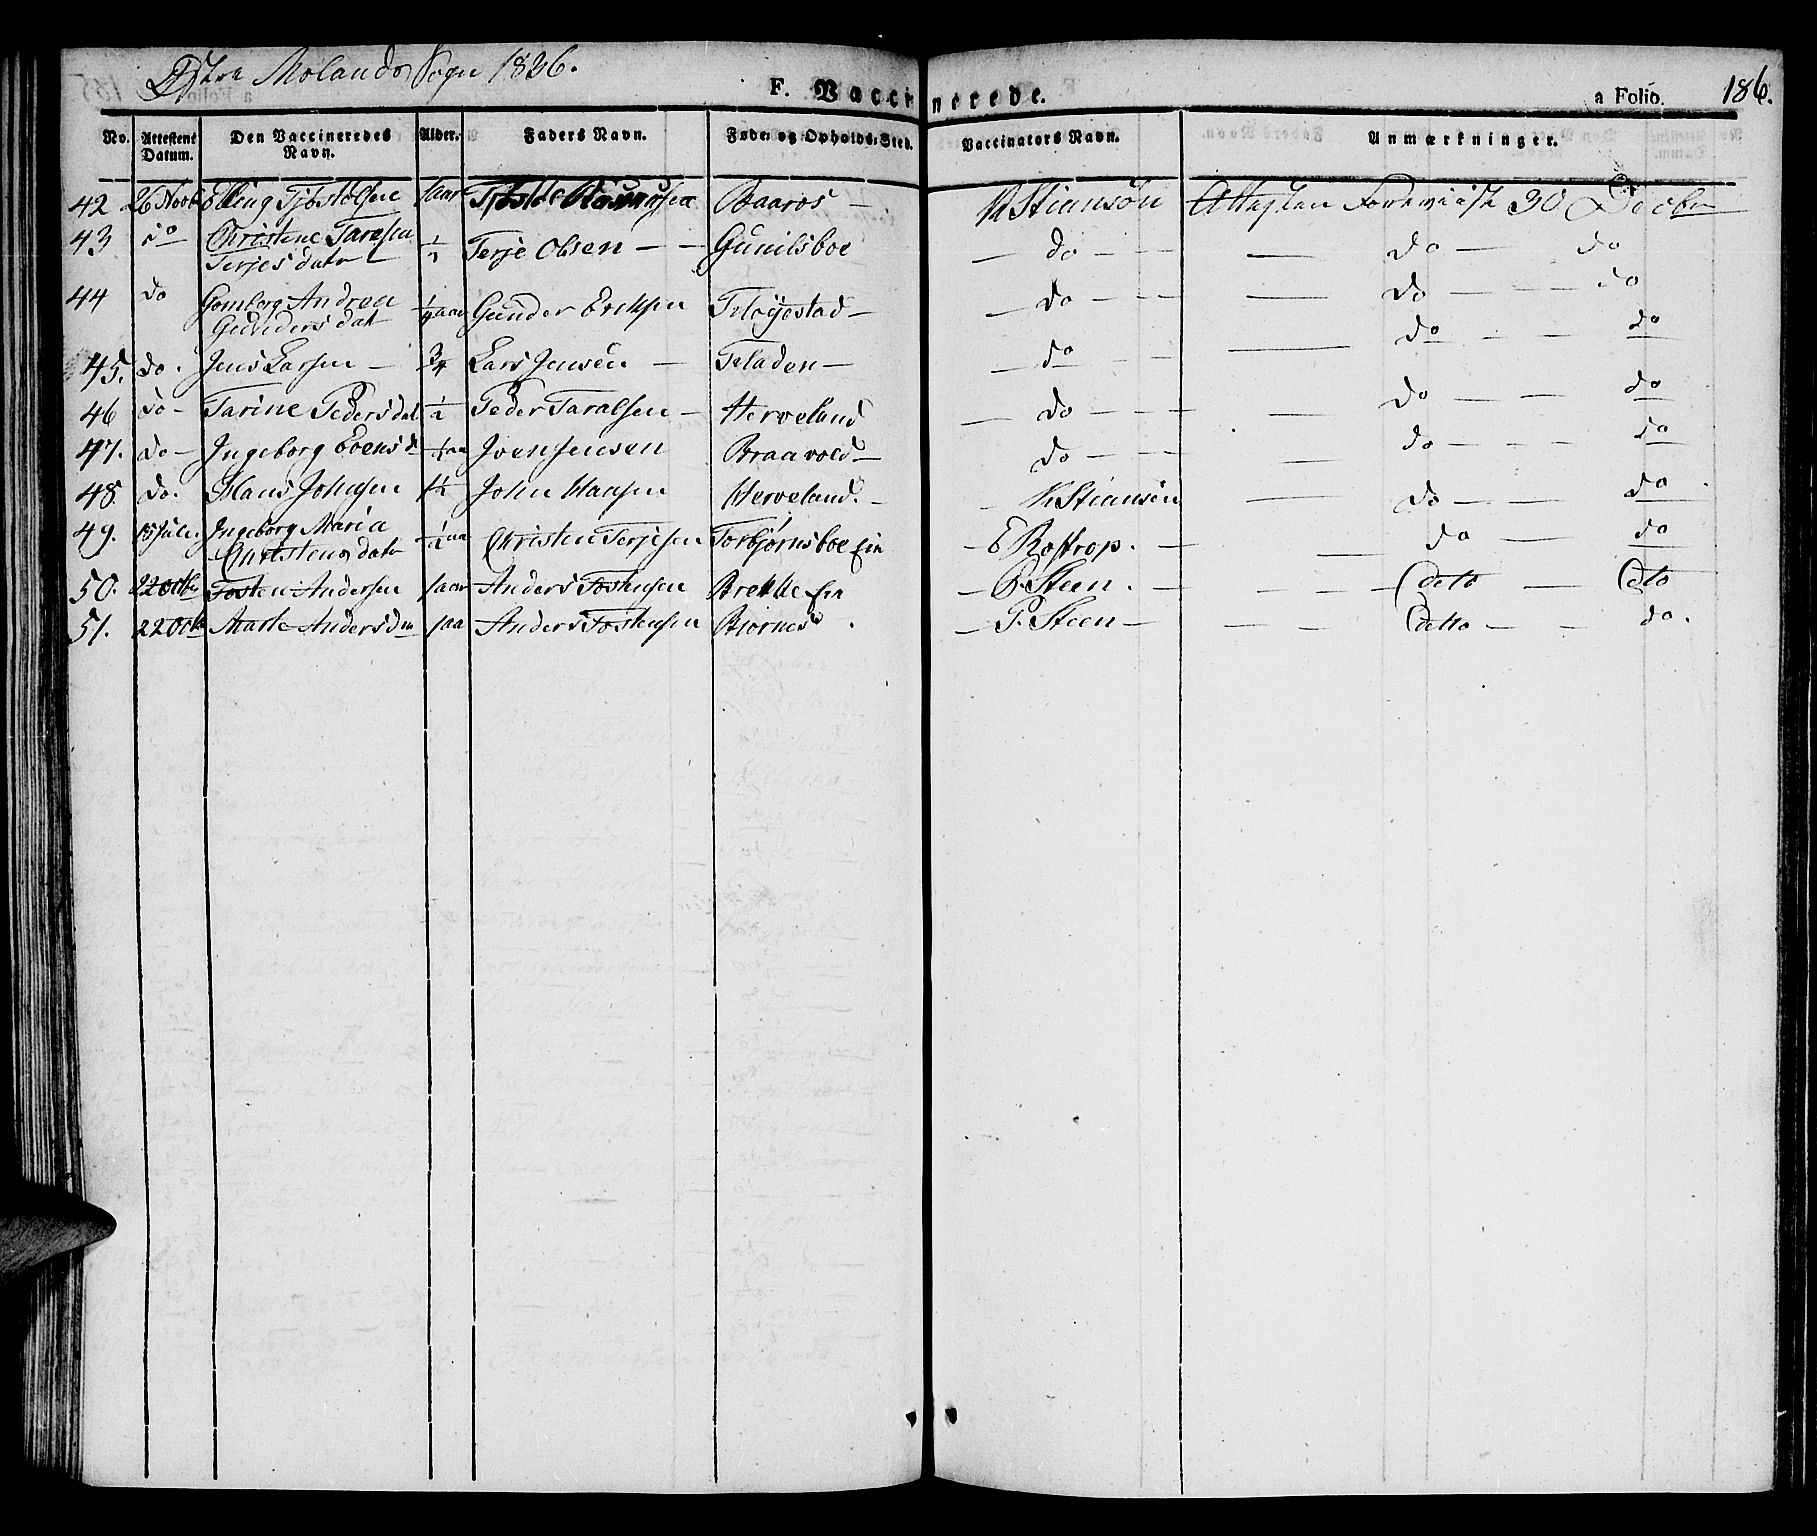 Østre Molands Sogn 1836.
F. Vaccinerede.
a Folio. 186.
No. Attestens Datum. Den Vaccineredes Navn. Alder. Faders Navn. Føde- og Opholds-Sted. Vaccinators Navn. Anmærkninger.
42 26 Novb Elling Tjøstolsen 1 aar Tjøstol Baaros — Stiansøn Attesten Foreviist 30 Decbr
43 do Christine
Terjesdatr Terje Olsen — — Gunilsboe — do — — — do — do
44 do Gomborg Andrea
Gundersdat 1/4 aar Gunder Ericksen Fløyestad — — do — — — do — — do
45. do. Jens Larsen — 3/4 Lars Jensen — Fladen — — do — — — do — — do
46 do — Tarine Pedersdat 1/2 Peder Taralsen — Herveland — do — — — do — — do
47. do — Ingeborg Joen Jensen Braavold — do — — — do — — do
48. do. Hans Johnsen 1 1/2 John Hansen Herveland. — — Stiansen — do — — do
49. 15 Juli. Ingeborg Maria
Christensdatr 1/2 aa Christen Terjesen Torbjørnsboe Ein — E Rostrop. — — do — do
50. 22 Octbr Tosten Andersen 1 aar Anders Tostensen Brekke Ein — P. Steen. — — — deto — deto
51. 22 Octb Marte Andersd 1 aa Anders Tostensen Bjørnes — P. Steen — — — — detto — do.